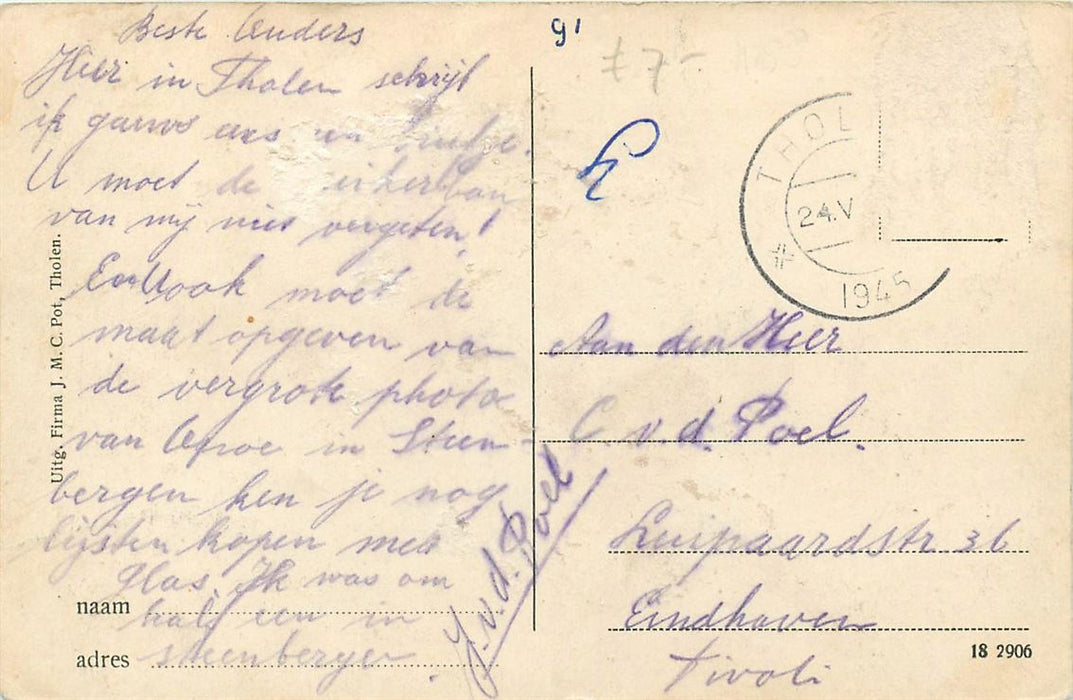 Beste Ouders
Hier in Tholen schrijf
ik gauw een
U moet de
van mij niet vergeten!
En U ook moet de
maat opgeven van
de vergrote photo
van in Steen-
bergen ken je nog
lijsten kopen met
glas. Ik was om
half een in
steenbergen.
J.v.d. Poel
naam
adres
Uitg. Firma J. M. C. Pot, Tholen.
91
£ 7-
THOL
24.V
1945
Aan den Heer
C. v. d. Poel.
Luipaardstr. 36
Eindhoven
Tivoli
18 2906